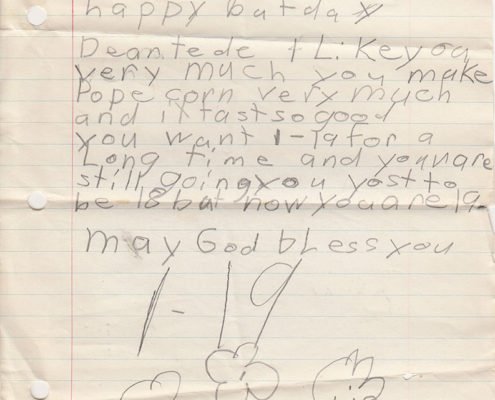 happy batday
Deantede I Like you
very much you make
Pope corn very much
and it tast so good
you want 1-19 for a
Long time and younare
still going you yost to
be 18 but now you are 19
may God bless you
1-19